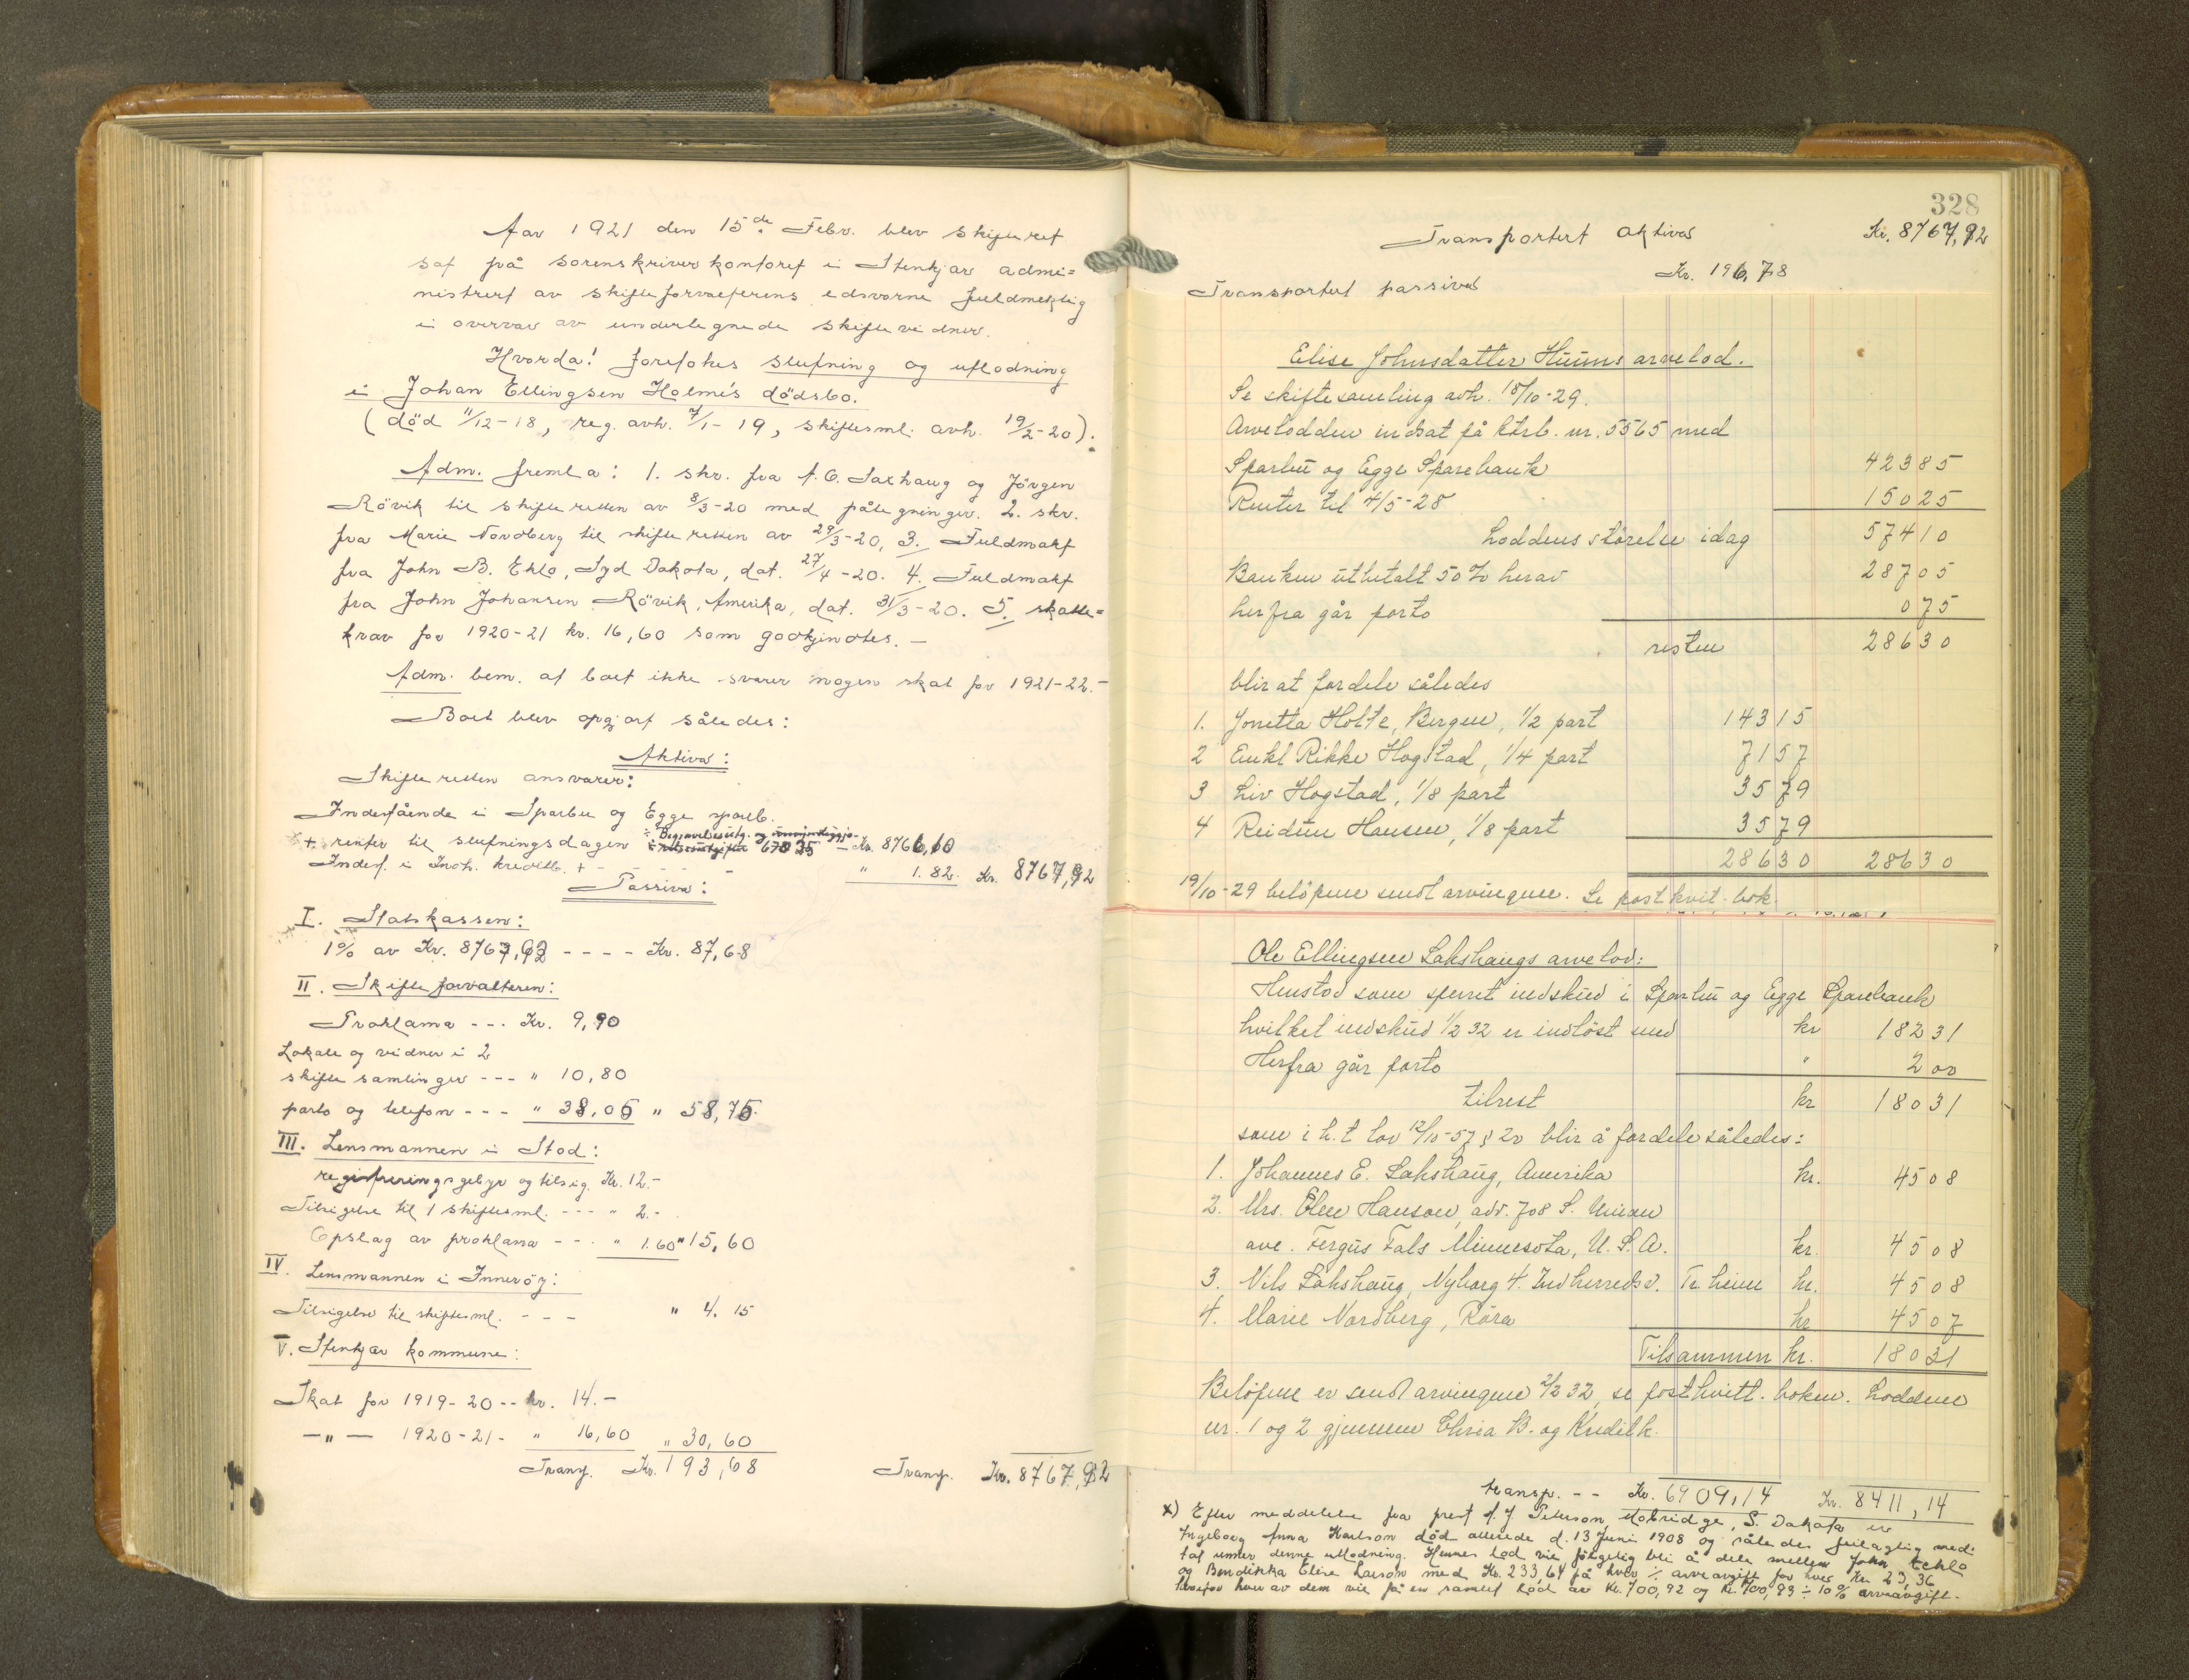 Aar 1921 den 15de Febr. blev skifteret
sat på sorenskriverkontoret i Stenkjær admi=
nistrert av skifteforvalterens edsvorne fuldmektig
i overvær av underlegnede skiftevidner.
Hvorda! foretokes slutning og utlodning
i Johan Ellingsen Holme's dödsbo.
(död 11/12-18, reg. avh. 7/1-19, skiftesml. avh. 19/2-20).
Adm. freml a: 1. skr. fra A. O. Saxhaug og Jörgen
Rövik til skifteretten av 8/3-20 med påtegninger. 2. skr.
fra Marie Nordberg til skifteretten av 29/3-20, 3. Fuldmakt
fra John B. Eklo, Syd Dakota, dat. 27/4-20. 4. Fuldmakt
fra John Johansen Rövik, Amerika, dat. 31/3-20. 5. skatte=
krav for 1920-21 kr. 16,60 som godkjendtes. -
Adm. bem. at boet ikke svarer nogen skat for 1921-22. -
Boet blev opgjort således:
Aktiva:
Skifteretten ansvarer:
Indestående i Sparbu og Egge spareb.
+ renter til slutningsdagen ÷ Begravelsesutg. og 678 35 - Kr. 8766,10
Indest. i Indh. kreditb. + - - - - " 1.82. Kr. 8767,92
Passiva:
I. Statskassen:
1% av Kr. 8767,92 - - - - Kr. 87,68
II. Skifteforvalteren:
Proklama - - - Kr. 9,90
Lokale og vidner i 2
skiftesamlinger - - - " 10,80
porto og telefon - - - " 38,05 " 58,75
III. Lensmannen i Stod:
registreringsgebyr og tilsig. Kr. 12.-
Tilsigelse til 1 skiftesml. - - - " 2.-
Opslag av proklama - - - " 1.60 " 15,60
IV. Lensmannen i Inneröy:
Tilsigelse til skiftesml. - - - " 4.15
V. Stenkjær kommune:
Skat for 1919-20 -- kr. 14.-
-"- 1920-21- " 16,60 " 30,60
Transp. Kr. 193,68 Transp. Kr. 8767,92
328
Transportert aktiva Kr. 8767,92
Transportert passiva Kr. 196,78
Elise Johnsdatter Huums arvelod.
Se skiftesamling avh. 18/10-29.
Arvelodden indsat på ktrb. nr. 5565 med
Sparbu og Egge Sparebank 42385
Renter til 4/5-28 15025
Loddens störelse idag 57410
Banken utbetalt 50% herav 28705
herfra går porto 075
resten 28630
blir at fordele således
1. Jonetta Holte, Bergen, 1/2 part 14315
2 Enkl Rikke Hogstad, 1/4 part 7157
3 Liv Hogstad, 1/8 part 3579
4 Reidun Hansen, 1/8 part 3579
28630 28630
19/10-29 belöpene sendt arvingene. Se postkvit. bok.
Ole Ellingsen Lakshaugs arvelod:
Henstod som sperret indskud i Sparbu og Egge Sparebank
hvilket indskud 1/2 32 er indlöst med kr 18231
Herfra går porto " 200
tilrest kr 18031
som i h. t lov 12/10-57 § 20 blir å fordele således:
1. Johannes E. Lakshaug, Amerika kr. 4508
2. Mrs. Elen Hanson, adr. 708 S. Union
ave. Fergus Fals Minnesota, U. S. A. kr. 4508
3. Nils Lakshaug, Nyborg 4. Indherredsv. Tr.heim kr. 4508
4. Marie Nordberg, Röra kr 4507
Tilsammen kr. 18031
Belöpene er sendt arvingene 2/2 32, se postkvitt. boken. Loddene
nr. 1 og 2 gjennem Chria B. og Kreditk.
transp. -- Kr. 6909,14 Kr. 8411,14
x) Efter meddelelse fra prest A. J. Peterson, Mobridge, S. Dakota er
Ingeborg Anna Karlson död allerede d. 13 Juni 1908 og således feilagtig med:
tat under denne utlodning. Hennes lod vil fölgelig bli å dele mellem John Eklo
og Bendikka Elise Larson med Kr. 233,64 på hver ÷ arveavgift for hver Kr. 23,36
hvorfor hver av dem vil få en samlet lod av Kr. 700,92 og Kr. 700,93 ÷ 10% arveavgift.